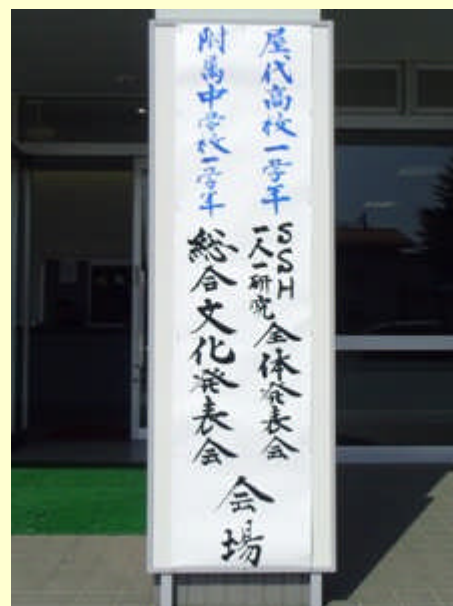 屋代高校一学年
SSH
一人一研究
全体発表会
附属中学校一学年
総合文化発表会
会場